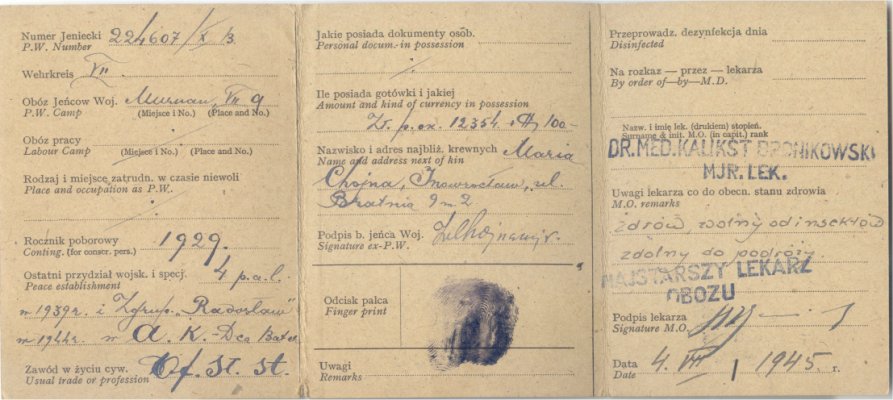 Numer Jeniecki 224607/X B.
P.W. Number
Wehrkreis VII.
Obóz Jeńców Woj. Murnau, VII a
P.W. Camp (Miejsce i No.) (Place and No.)
Obóz pracy
Labour Camp (Miejsce i No.) (Place and No.)
Rodzaj i miejsce zatrudn. w czasie niewoli
Place and occupation as P.W.
Rocznik poborowy 1929.
Conting. (for conscr. pers.)
Ostatni przydział wojsk. i specj. 4 p.a.l.
Peace establishment
w 1939 r. i Zgrup. "Radosław"
w 1944 r. w A. K. - Dca Bater.
Zawód w życiu cyw. Of. st. st.
Usual trade or profession
Jakie posiada dokumenty osób.
Personal docum.-in possession
Ile posiada gotówki i jakiej
Amount and kind of currency in possession
12354 100-
Nazwisko i adres najbliż. krewnych Maria
Name and address next of kin
Chojna, Inowrocław, ul.
Bratnia 9 m 2.
Podpis b. jeńca Woj.
Signature ex-P.W.
Odcisk palca
Finger print
Uwagi
Remarks
Przeprowadz. dezynfekcja dnia
Disinfected
Na rozkaz — przez — lekarza
By order of—by—M.D.
Nazw. i imię lek. (drukiem) stopień.
Surname & init. M.O. (in capit.) rank
DR. MED. KALIKST BRONIKOWSKI
MJR. LEK.
Uwagi lekarza co do obecn. stanu zdrowia
M.O. remarks
zdrów, wolny od insektów
zdolny do podróży
NAJSTARSZY LEKARZ
OBOZU
Podpis lekarza
Signature M.O.
Data 4. VIII 1945 r.
Date